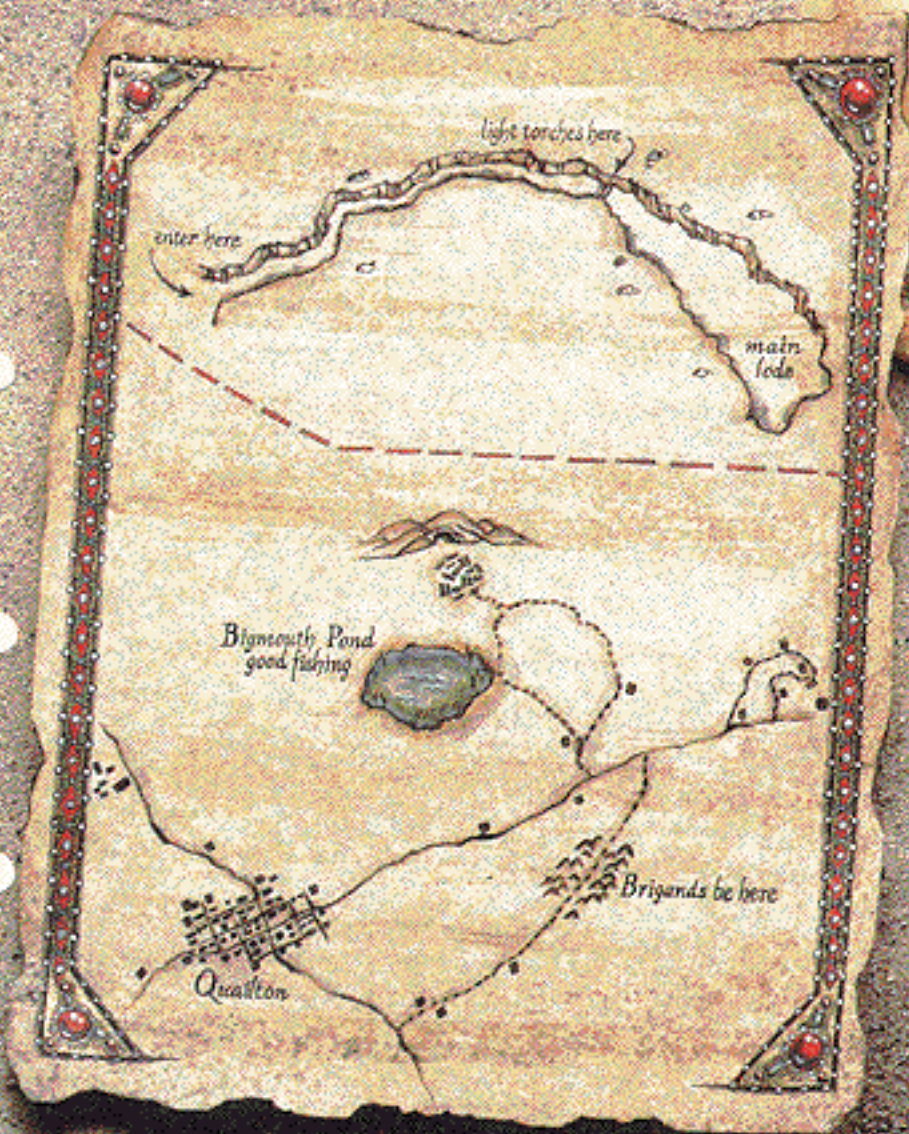 light torches here
enter here
main
lode
Bigmouth Pond
good fishing
Brigands be here
Quailton